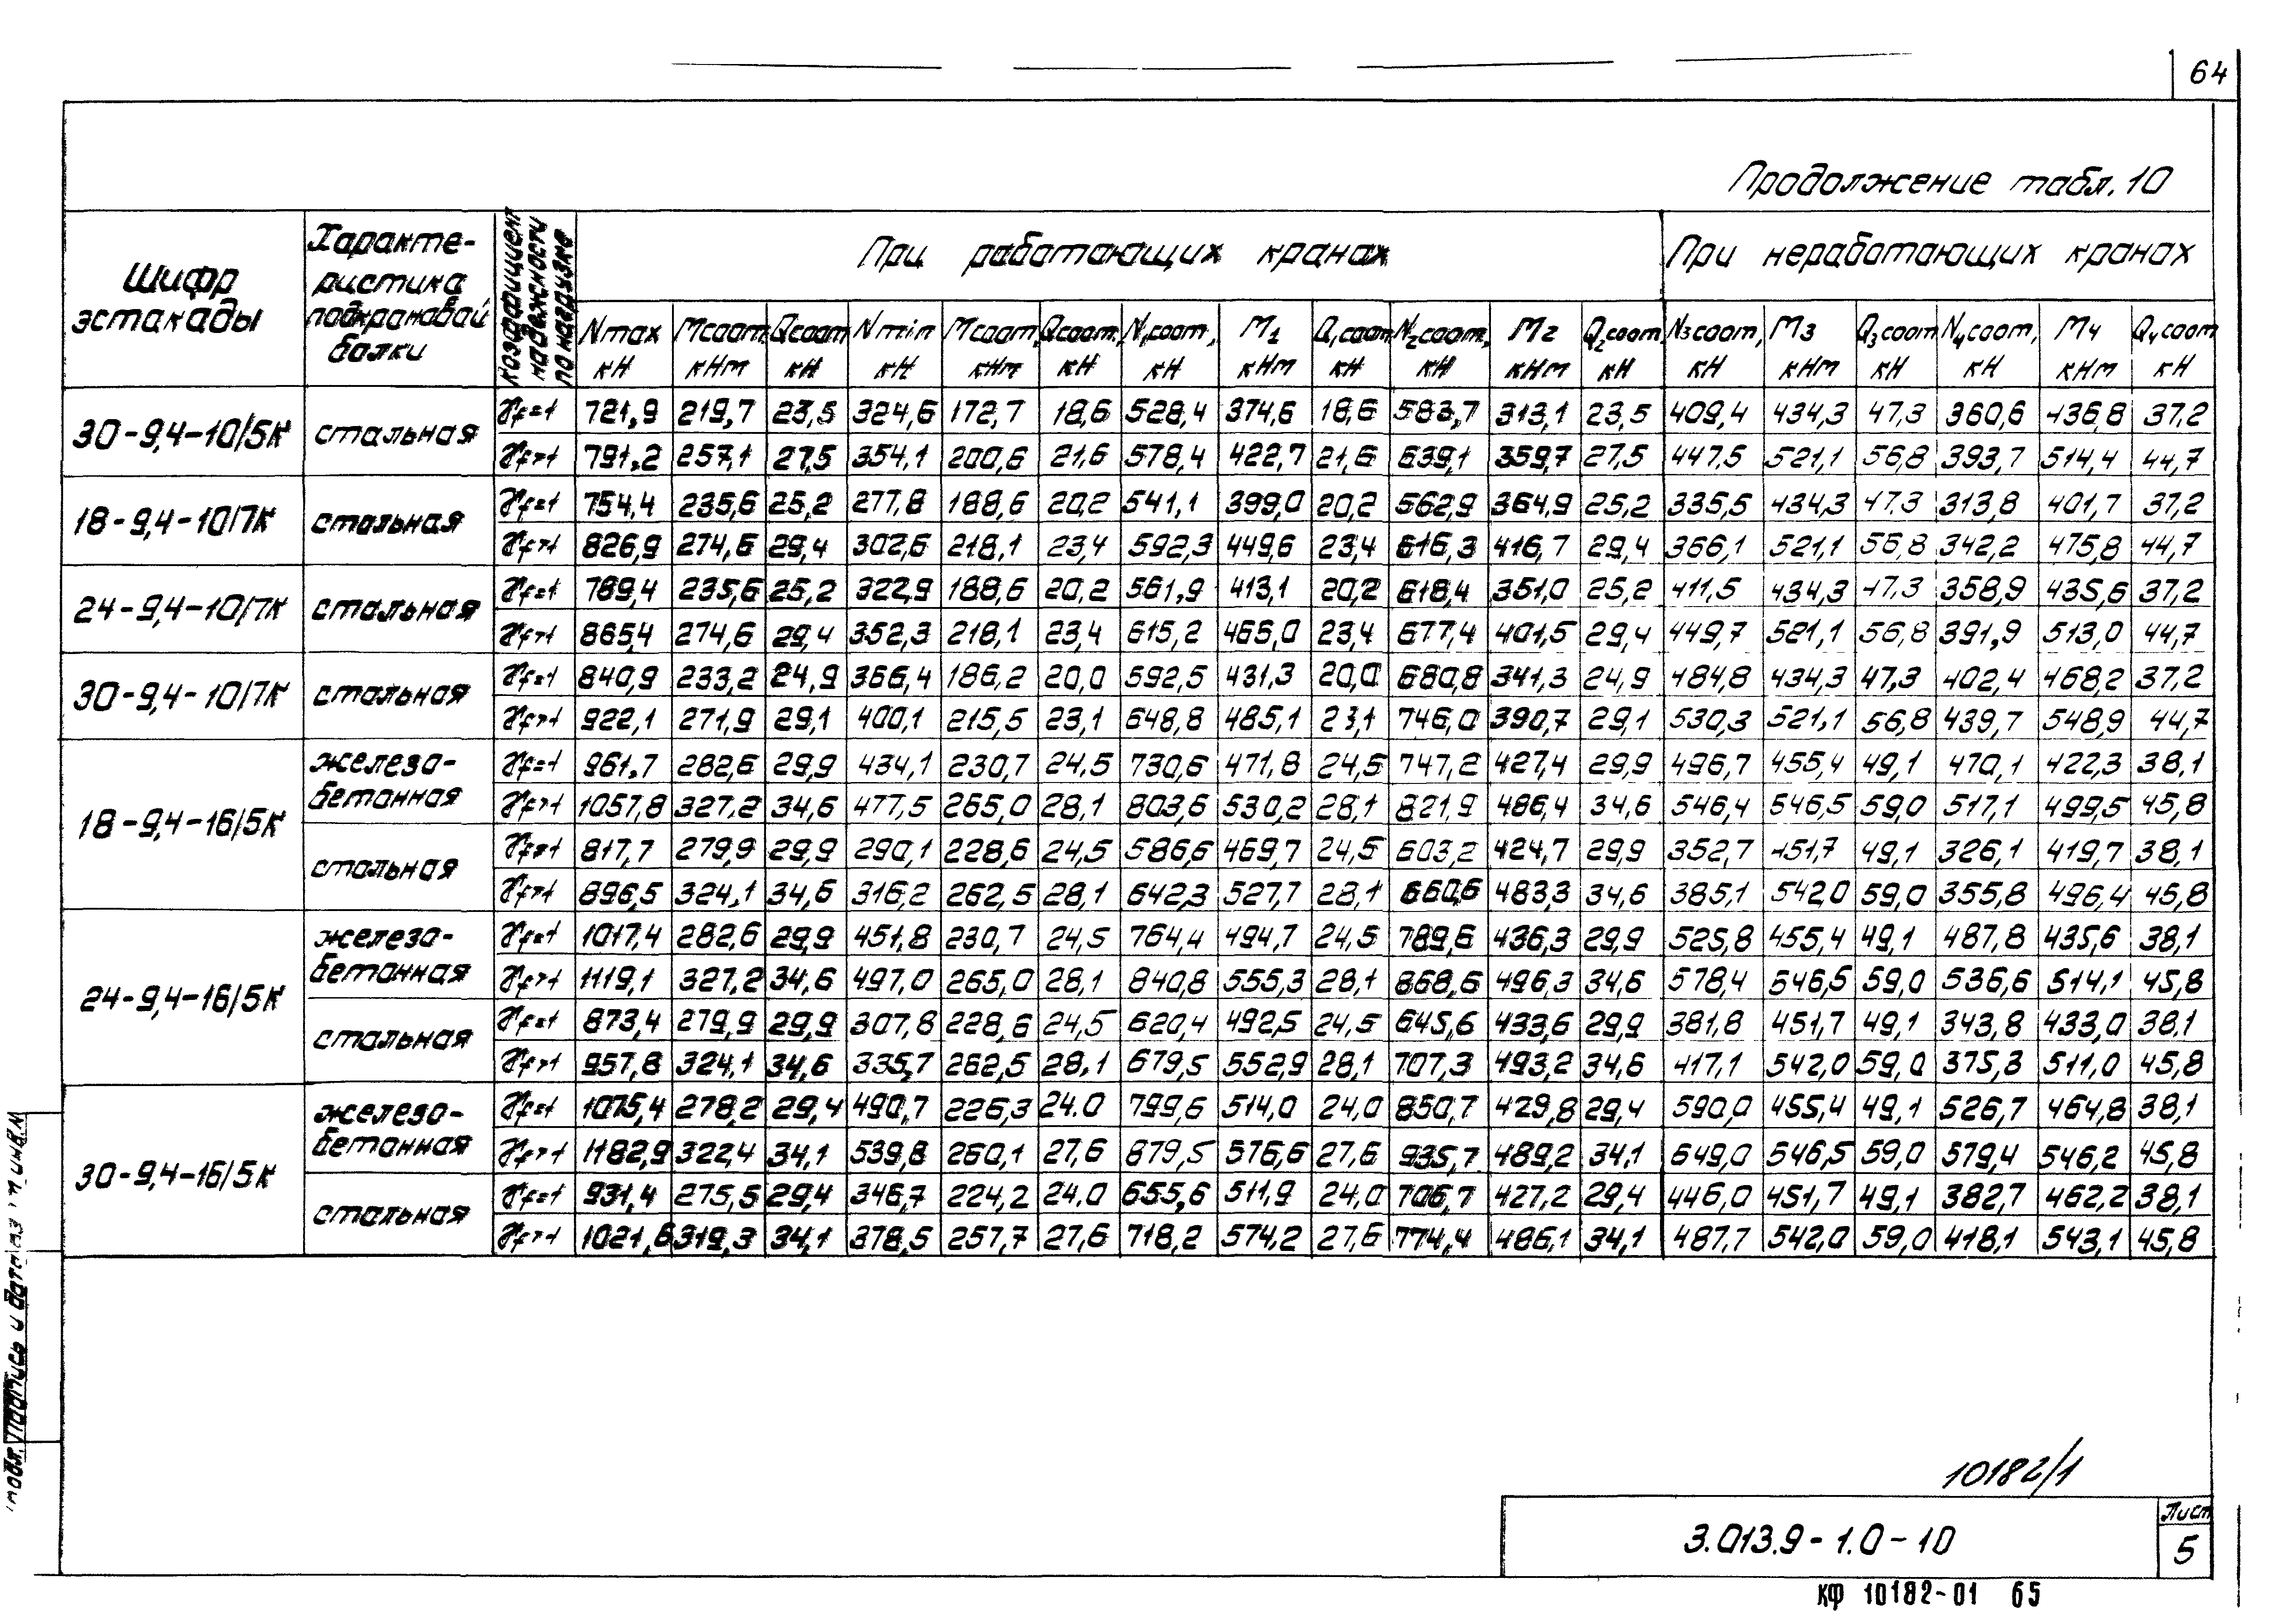 64
Продолжение табл. 10
Шифр эстакады | Характеристика подкрановой балки | Коэффициент надежности по нагрузке | При работающих кранах | При неработающих кранах
Nmax кН | Mсоот, кНм | Qсоот кН | Nmin кН | Mсоот, кНм | Qсоот, кН | N1соот, кН | M1 кНм | Q1соот кН | N2соот, кН | M2 кНм | Q2соот, кН | N3соот, кН | M3 кНм | Q3соот кН | N4соот, кН | M4 кНм | Q4соот кН
30-9,4-10/5К | стальная | γf=1 | 721,9 | 219,7 | 23,5 | 324,6 | 172,7 | 18,6 | 528,4 | 374,6 | 18,6 | 583,7 | 313,1 | 23,5 | 409,4 | 434,3 | 47,3 | 360,6 | 436,8 | 37,2
γf>1 | 791,2 | 257,1 | 27,5 | 354,1 | 200,6 | 21,6 | 578,4 | 422,7 | 21,6 | 639,1 | 359,7 | 27,5 | 447,5 | 521,1 | 56,8 | 393,7 | 514,4 | 44,7
18-9,4-10/7К | стальная | γf=1 | 754,4 | 235,6 | 25,2 | 277,8 | 188,6 | 20,2 | 541,1 | 399,0 | 20,2 | 562,9 | 364,9 | 25,2 | 335,5 | 434,3 | 47,3 | 313,8 | 401,7 | 37,2
γf>1 | 826,9 | 274,6 | 29,4 | 302,6 | 218,1 | 23,4 | 592,3 | 449,6 | 23,4 | 616,3 | 416,7 | 29,4 | 366,1 | 521,1 | 56,8 | 342,2 | 475,8 | 44,7
24-9,4-10/7К | стальная | γf=1 | 789,4 | 235,6 | 25,2 | 322,9 | 188,6 | 20,2 | 561,9 | 413,1 | 20,2 | 618,4 | 351,0 | 25,2 | 411,5 | 434,3 | 47,3 | 358,9 | 435,6 | 37,2
γf>1 | 865,4 | 274,6 | 29,4 | 352,3 | 218,1 | 23,4 | 615,2 | 465,0 | 23,4 | 677,4 | 401,5 | 29,4 | 449,7 | 521,1 | 56,8 | 391,9 | 513,0 | 44,7
30-9,4-10/7К | стальная | γf=1 | 840,9 | 233,2 | 24,9 | 366,4 | 186,2 | 20,0 | 592,5 | 431,3 | 20,0 | 680,8 | 341,3 | 24,9 | 484,8 | 434,3 | 47,3 | 402,4 | 468,2 | 37,2
γf>1 | 922,1 | 271,9 | 29,1 | 400,1 | 215,5 | 23,1 | 648,8 | 485,1 | 23,1 | 746,0 | 390,7 | 29,1 | 530,3 | 521,1 | 56,8 | 439,7 | 548,9 | 44,7
18-9,4-16/5К | железобетонная | γf=1 | 961,7 | 282,6 | 29,9 | 434,1 | 230,7 | 24,5 | 730,6 | 471,8 | 24,5 | 747,2 | 427,4 | 29,9 | 496,7 | 455,4 | 49,1 | 470,1 | 422,3 | 38,1
γf>1 | 1057,8 | 327,2 | 34,6 | 477,5 | 265,0 | 28,1 | 803,6 | 530,2 | 28,1 | 821,9 | 486,4 | 34,6 | 546,4 | 546,5 | 59,0 | 517,1 | 499,5 | 45,8
стальная | γf=1 | 817,7 | 279,9 | 29,9 | 290,1 | 228,6 | 24,5 | 586,6 | 469,7 | 24,5 | 603,2 | 424,7 | 29,9 | 352,7 | 451,7 | 49,1 | 326,1 | 419,7 | 38,1
γf>1 | 896,5 | 324,1 | 34,6 | 316,2 | 262,5 | 28,1 | 642,3 | 527,7 | 28,1 | 660,6 | 483,3 | 34,6 | 385,1 | 542,0 | 59,0 | 355,8 | 496,4 | 45,8
24-9,4-16/5К | железобетонная | γf=1 | 1017,4 | 282,6 | 29,9 | 451,8 | 230,7 | 24,5 | 764,4 | 494,7 | 24,5 | 789,6 | 436,3 | 29,9 | 525,8 | 455,4 | 49,1 | 487,8 | 435,6 | 38,1
γf>1 | 1119,1 | 327,2 | 34,6 | 497,0 | 265,0 | 28,1 | 840,8 | 555,3 | 28,1 | 868,6 | 496,3 | 34,6 | 578,4 | 546,5 | 59,0 | 536,6 | 514,1 | 45,8
стальная | γf=1 | 873,4 | 279,9 | 29,9 | 307,8 | 228,6 | 24,5 | 620,4 | 492,5 | 24,5 | 645,6 | 433,6 | 29,9 | 381,8 | 451,7 | 49,1 | 343,8 | 433,0 | 38,1
γf>1 | 957,8 | 324,1 | 34,6 | 335,7 | 262,5 | 28,1 | 679,5 | 552,9 | 28,1 | 707,3 | 493,2 | 34,6 | 417,1 | 542,0 | 59,0 | 375,3 | 511,0 | 45,8
30-9,4-16/5К | железобетонная | γf=1 | 1075,4 | 278,2 | 29,4 | 490,7 | 226,3 | 24.0 | 799,6 | 514,0 | 24,0 | 850,7 | 429,8 | 29,4 | 590,0 | 455,4 | 49,1 | 526,7 | 464,8 | 38,1
γf>1 | 1182,9 | 322,4 | 34,1 | 539,8 | 260,1 | 27,6 | 879,5 | 576,6 | 27,6 | 935,7 | 489,2 | 34,1 | 649,0 | 546,5 | 59,0 | 579,4 | 546,2 | 45,8
стальная | γf=1 | 931,4 | 275,5 | 29,4 | 346,7 | 224,2 | 24,0 | 655,6 | 511,9 | 24,0 | 706,7 | 427,2 | 29,4 | 446,0 | 451,7 | 49,1 | 382,7 | 462,2 | 38,1
γf>1 | 1021,6 | 319,3 | 34,1 | 378,5 | 257,7 | 27,6 | 718,2 | 574,2 | 27,6 | 774,4 | 486,1 | 34,1 | 487,7 | 542,0 | 59,0 | 418,1 | 543,1 | 45,8
10182/1
3.013.9-1.0-10
Лист
5
КФ 10182-01 65
подл. Подпись и дата